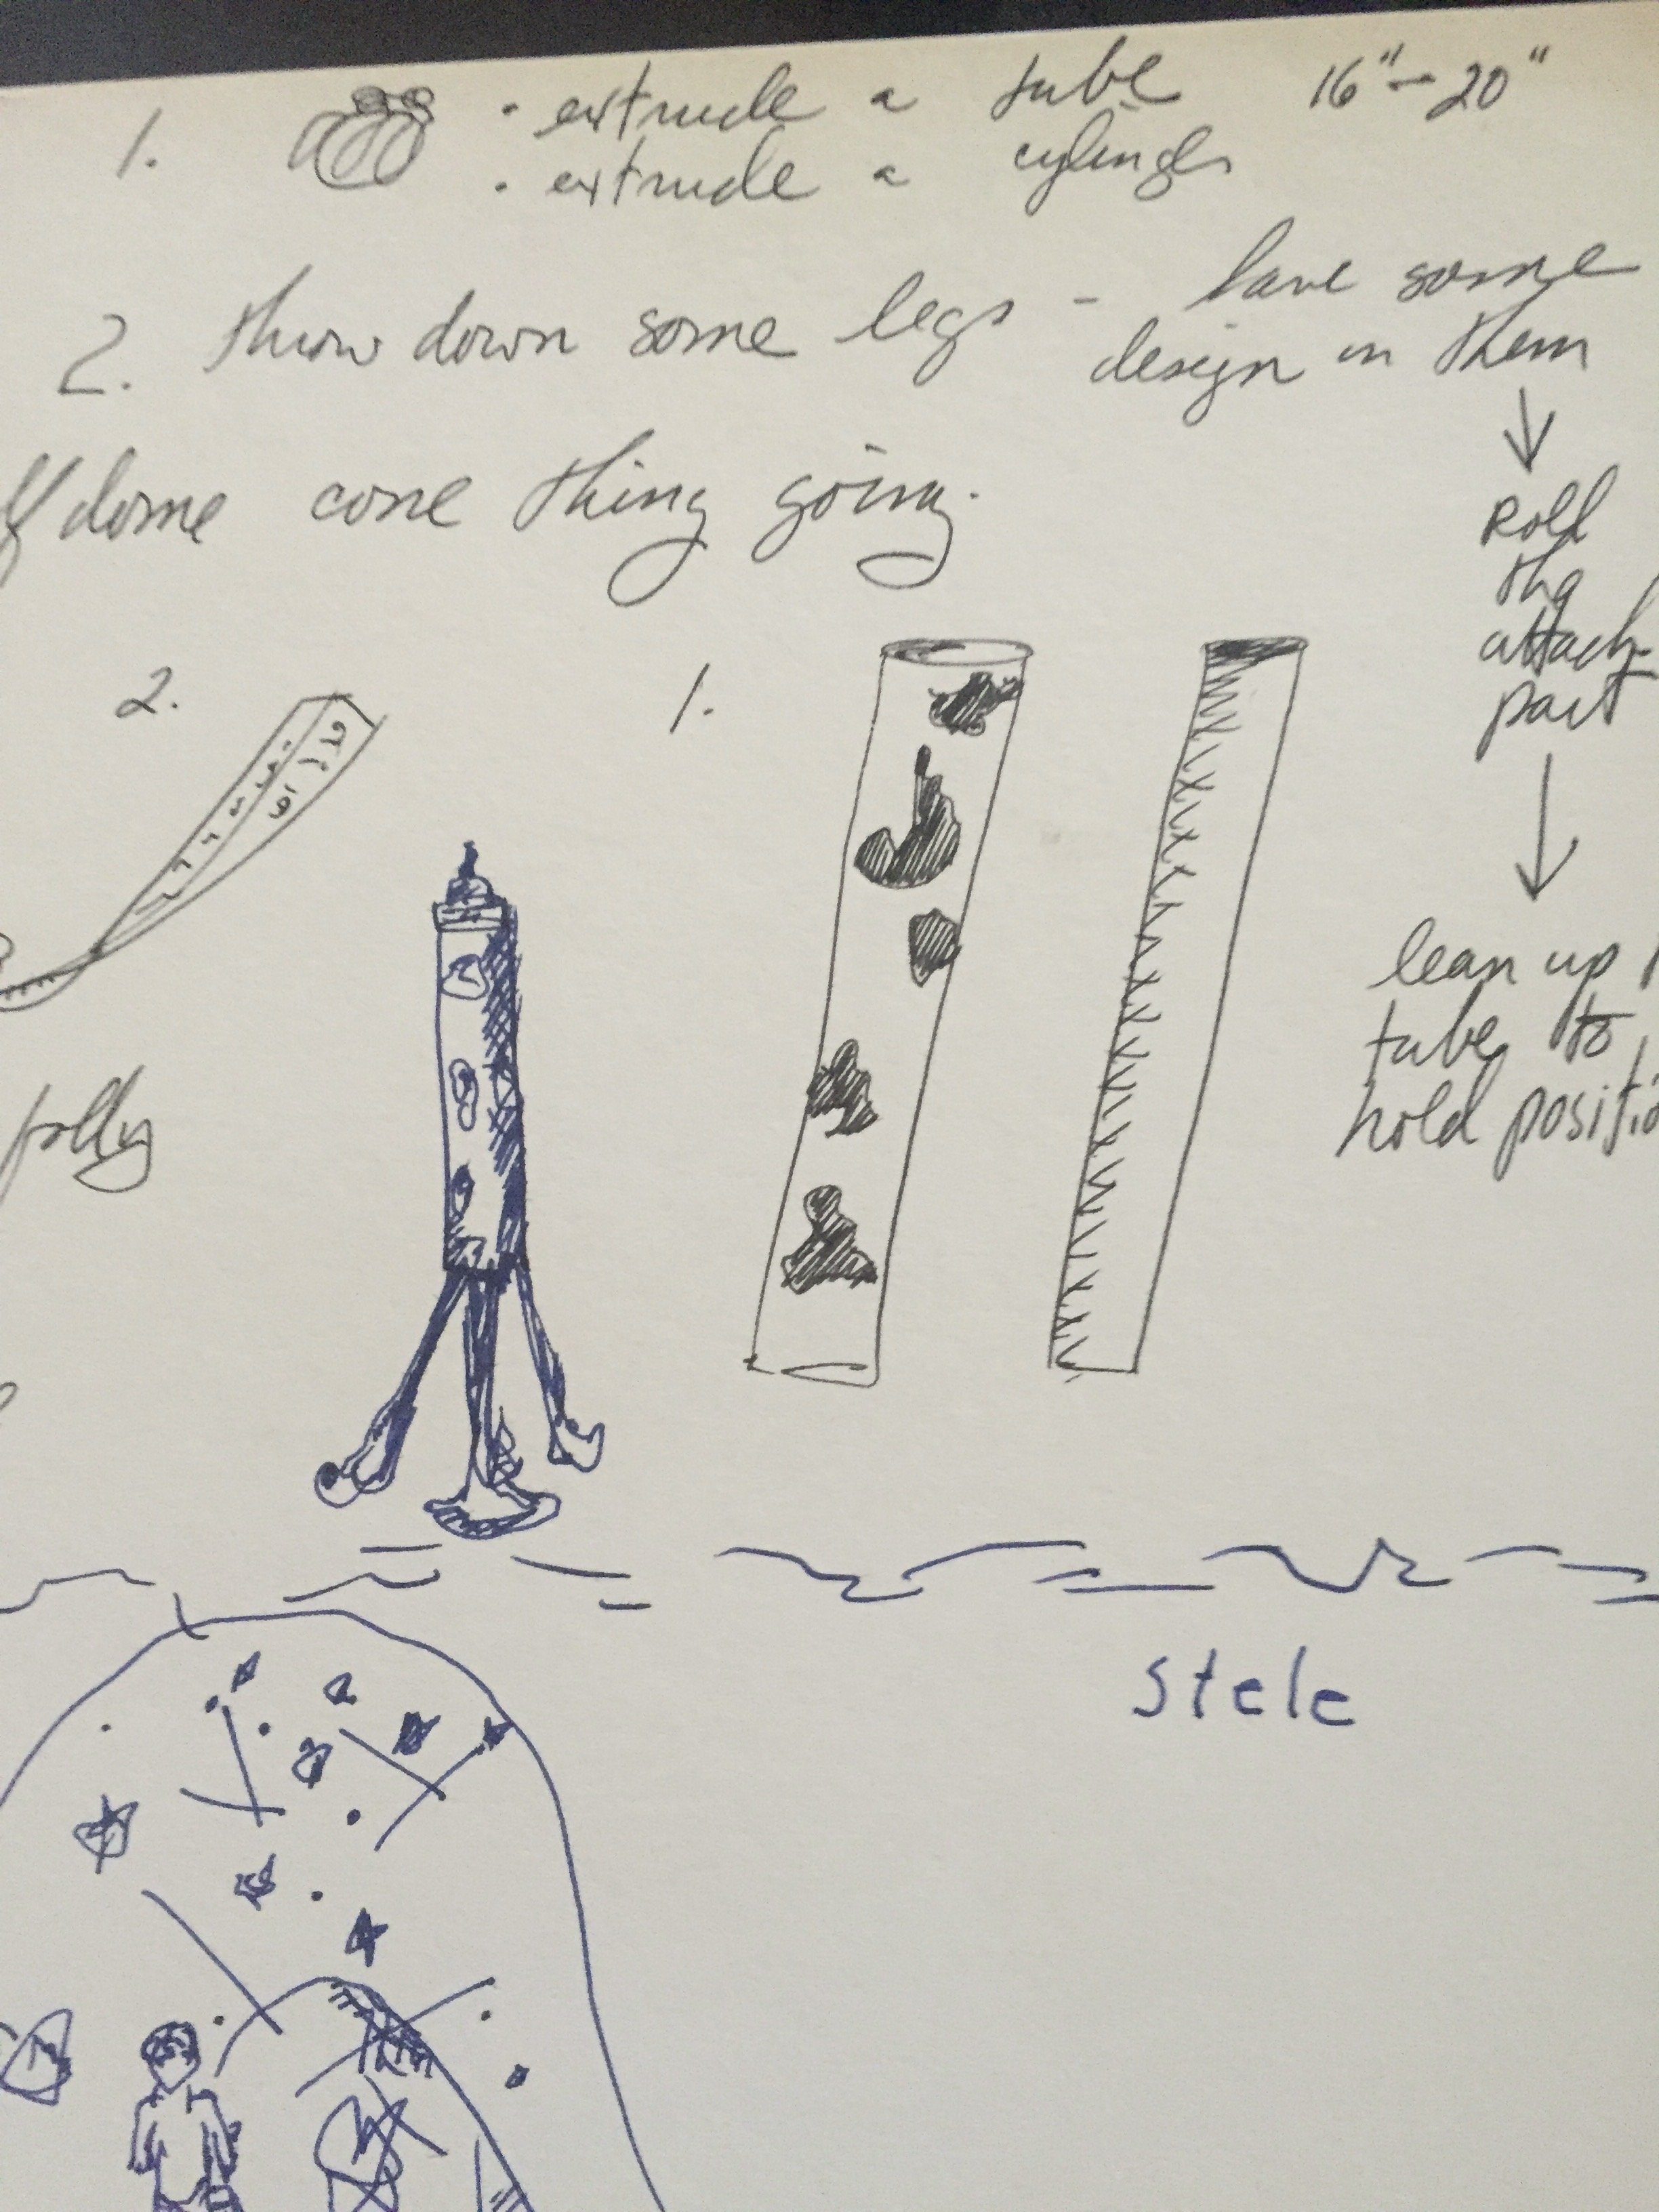 1. • extrude a tube 16" - 20"
• extrude a cylinder
2. throw down some legs - have some
design on them
↓
Roll
the
attach-
part
↓
lean up
tube to
hold positio
dome cone thing going.
2.
1.
folly
stele